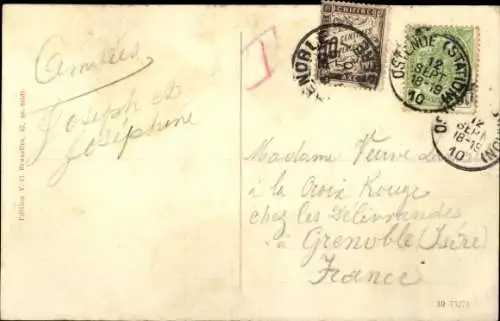 Amitiés
Joseph et
Joséphine
Édition V. G. Bruxelles,
T
CHIFFRE
GRENOBLE
ISERE
OSTENDE (STATION)
12
SEPT
18-19
10
12
SEPT
18-19
10
Madame Veuve
à la Croix Rouge
chez les Délivrandes
à Grenoble (Isère)
France